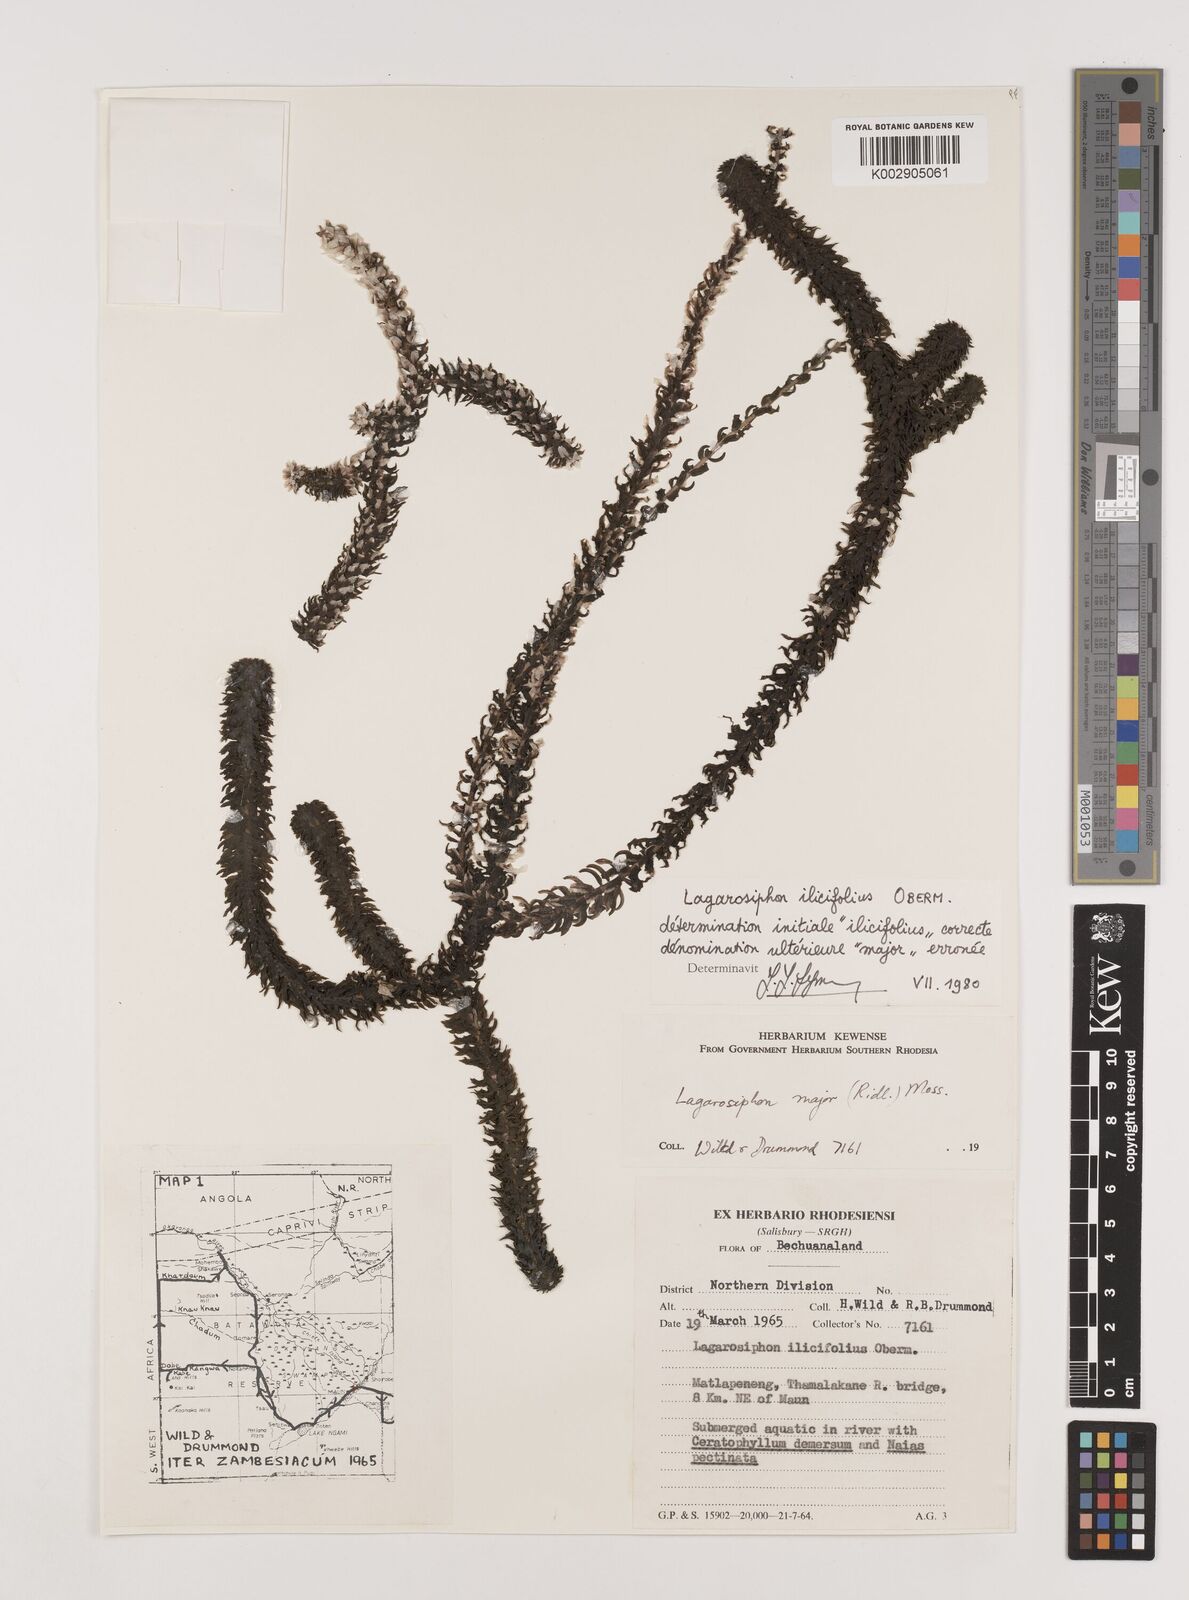 ROYAL BOTANIC GARDENS KEW
K002905061
Lagarosiphon ilicifolius OBERM.
détermination initiale "ilicifolius„ correcte
dénomination ultérieure "major„ erronée
Determinavit
VII. 1980
HERBARIUM KEWENSE
FROM GOVERNMENT HERBARIUM SOUTHERN RHODESIA
Lagarosiphon major (Ridl.) Moss.
COLL. Wild & Drummond 7161 . . 19
EX HERBARIO RHODESIENSI
(Salisbury — SRGH)
FLORA OF Bechuanaland
District Northern Division No.
Alt. Coll. H.Wild & R.B.Drummond
Date 19th March 1965 Collector's No. 7161
Lagarosiphon ilicifolius Oberm.
Matlapeneng, Thamalakane R. bridge,
8 Km. NE of Maun
Submerged aquatic in river with
Ceratophyllum demersum and Naias
pectinata
G.P. & S. 15902—20,000—21-7-64. A.G. 3
MAP 1
NORTH
ANGOLA
N.R.
CAPRIVI STRIP
Mohembo
Khardoum
Knau Knau
Chadum
BATAWANA
Kangwa
RESERVE
Kai Kai
LAKE NGAMI
S. WEST AFRICA
WILD &
DRUMMOND
ITER ZAMBESIACUM 1965
inches
centimeters
Density
Don Williams
M001053
Kew
Royal Botanic Gardens
copyright reserved
0 1 2 3 4 5 6 7 8 9 10
cm